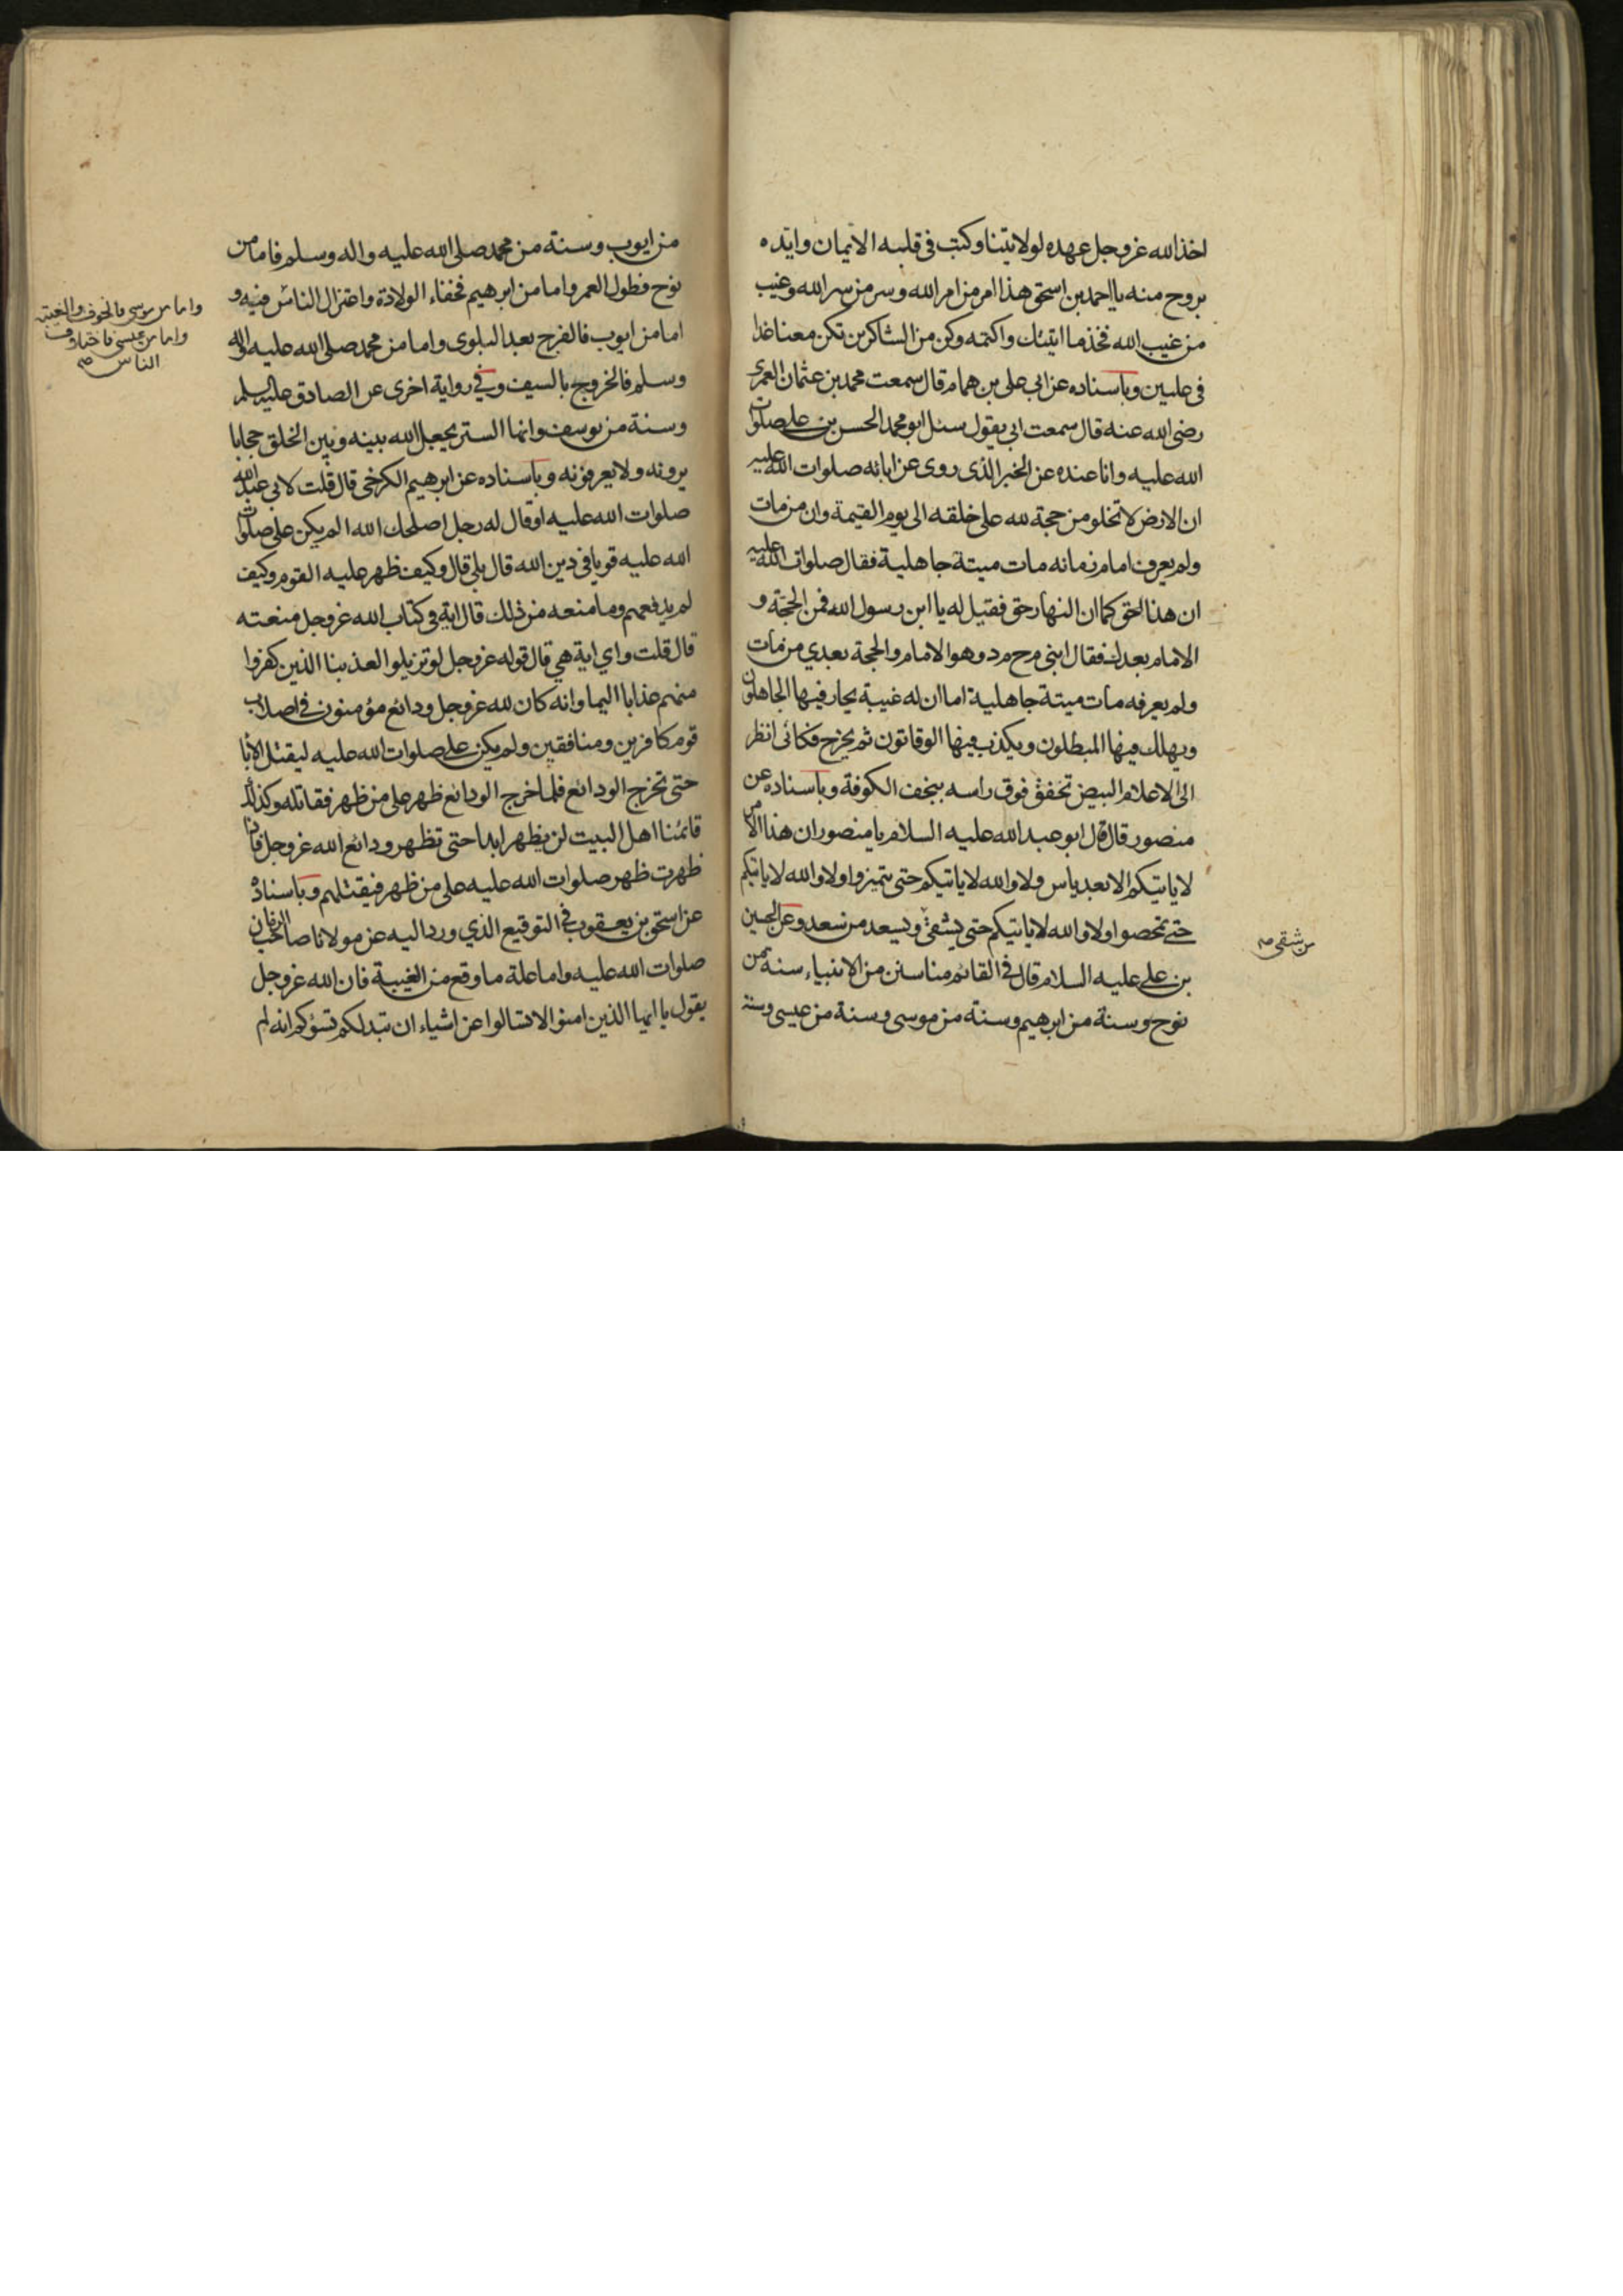 اخذ الله عز وجل عهده لولايتنا وكتب فى قلبه الايمان وايده
بروح منه يا احمد بن اسحق هذا امر من امر الله وسر من سر الله وغيب
من غيب الله فخذ ما اتيتك واكتمه وكن من الشاكرين تكن معنا غدا
فى عليين وباسناده عن ابى على بن همام قال سمعت محمد بن عثمان العمرى
رضى الله عنه قال سمعت ابى يقول سئل ابو محمد الحسن بن على صلوات
الله عليه وانا عنده عن الخبر الذى روى عن ابائه صلوات الله عليه
ان الارض لا تخلو من حجة لله على خلقه الى يوم القيمة وان من مات
ولم يعرف امام زمانه مات ميتة جاهلية فقال صلوات الله عليه
ان هذا لحق كما ان النهار حق فقيل له يا ابن رسول الله فمن الحجة و
الامام بعدك فقال ابنى م ح م د وهو الامام والحجة بعدي من مات
ولم يعرفه مات ميتة جاهلية اما ان له غيبة يحار فيها الجاهلون
ويهلك فيها المبطلون ويكذب فيها الوقاتون ثم يخرج فكانى انظر
الى الاعلام البيض تخفق فوق راسه بنجف الكوفة وباسناده عن
منصور قال قال ابو عبد الله عليه السلام يا منصور ان هذا الامر
لا ياتيكم الا بعد ياس ولا والله لا ياتيكم حتى تتميزوا ولا والله لا ياتيكم
حتى تمحصوا ولا والله لا ياتيكم حتى يشقى ويسعد من سعد وعن الحسين
من شقى صح
بن على عليه السلام قال فى القائم منا سنن من الانبياء سنة من
نوح وسنة من ابرهيم وسنة من موسى وسنة من عيسى وسنة
من ايوب وسنة من محمد صلى الله عليه واله وسلم فاما من
نوح فطول العمر واما من ابرهيم فخفاء الولادة واعتزال الناس فيه و
واما من موسى فالخوف والغيبة
واما من عيسى فاختلاف
الناس صح
اما من ايوب فالفرج بعد البلوى واما من محمد صلى الله عليه واله
وسلم فالخروج بالسيف وفي رواية اخرى عن الصادق عليه السلم
وسنة من يوسف وانما الستر يجعل الله بينه وبين الخلق حجابا
يرونه ولا يعرفونه وباسناده عن ابرهيم الكرخى قال قلت لابى عبد الله
صلوات الله عليه او قال له رجل اصلحك الله الم يكن على صلوات
الله عليه قويا فى دين الله قال بلى قال وكيف ظهر عليه القوم وكيف
لم يدفعهم وما منعه من ذلك قال اية فى كتاب الله عز وجل منعته
قال قلت واي اية هي قال قوله عز وجل لو تزيلوا لعذبنا الذين كفروا
منهم عذابا اليما وانه كان لله عز وجل ودائع مؤمنون فى اصلاب
قوم كافرين ومنافقين ولم يكن على صلوات الله عليه ليقتل الابا
حتى تخرج الودائع فلما خرج الودائع ظهر على من ظهر فقاتله وكذلك
قائمنا اهل البيت لن يظهر ابدا حتى تظهر ودائع الله عز وجل فاذا
ظهرت ظهر صلوات الله عليه على من ظهر فيقتلهم وباسناده
عن اسحق بن يعقوب فى التوقيع الذي ورد اليه عن مولانا صاحب الزمان
صلوات الله عليه واما علة ما وقع من الغيبة فان الله عز وجل
يقول يا ايها الذين امنوا لا تسالوا عن اشياء ان تبد لكم تسؤكم انه لم